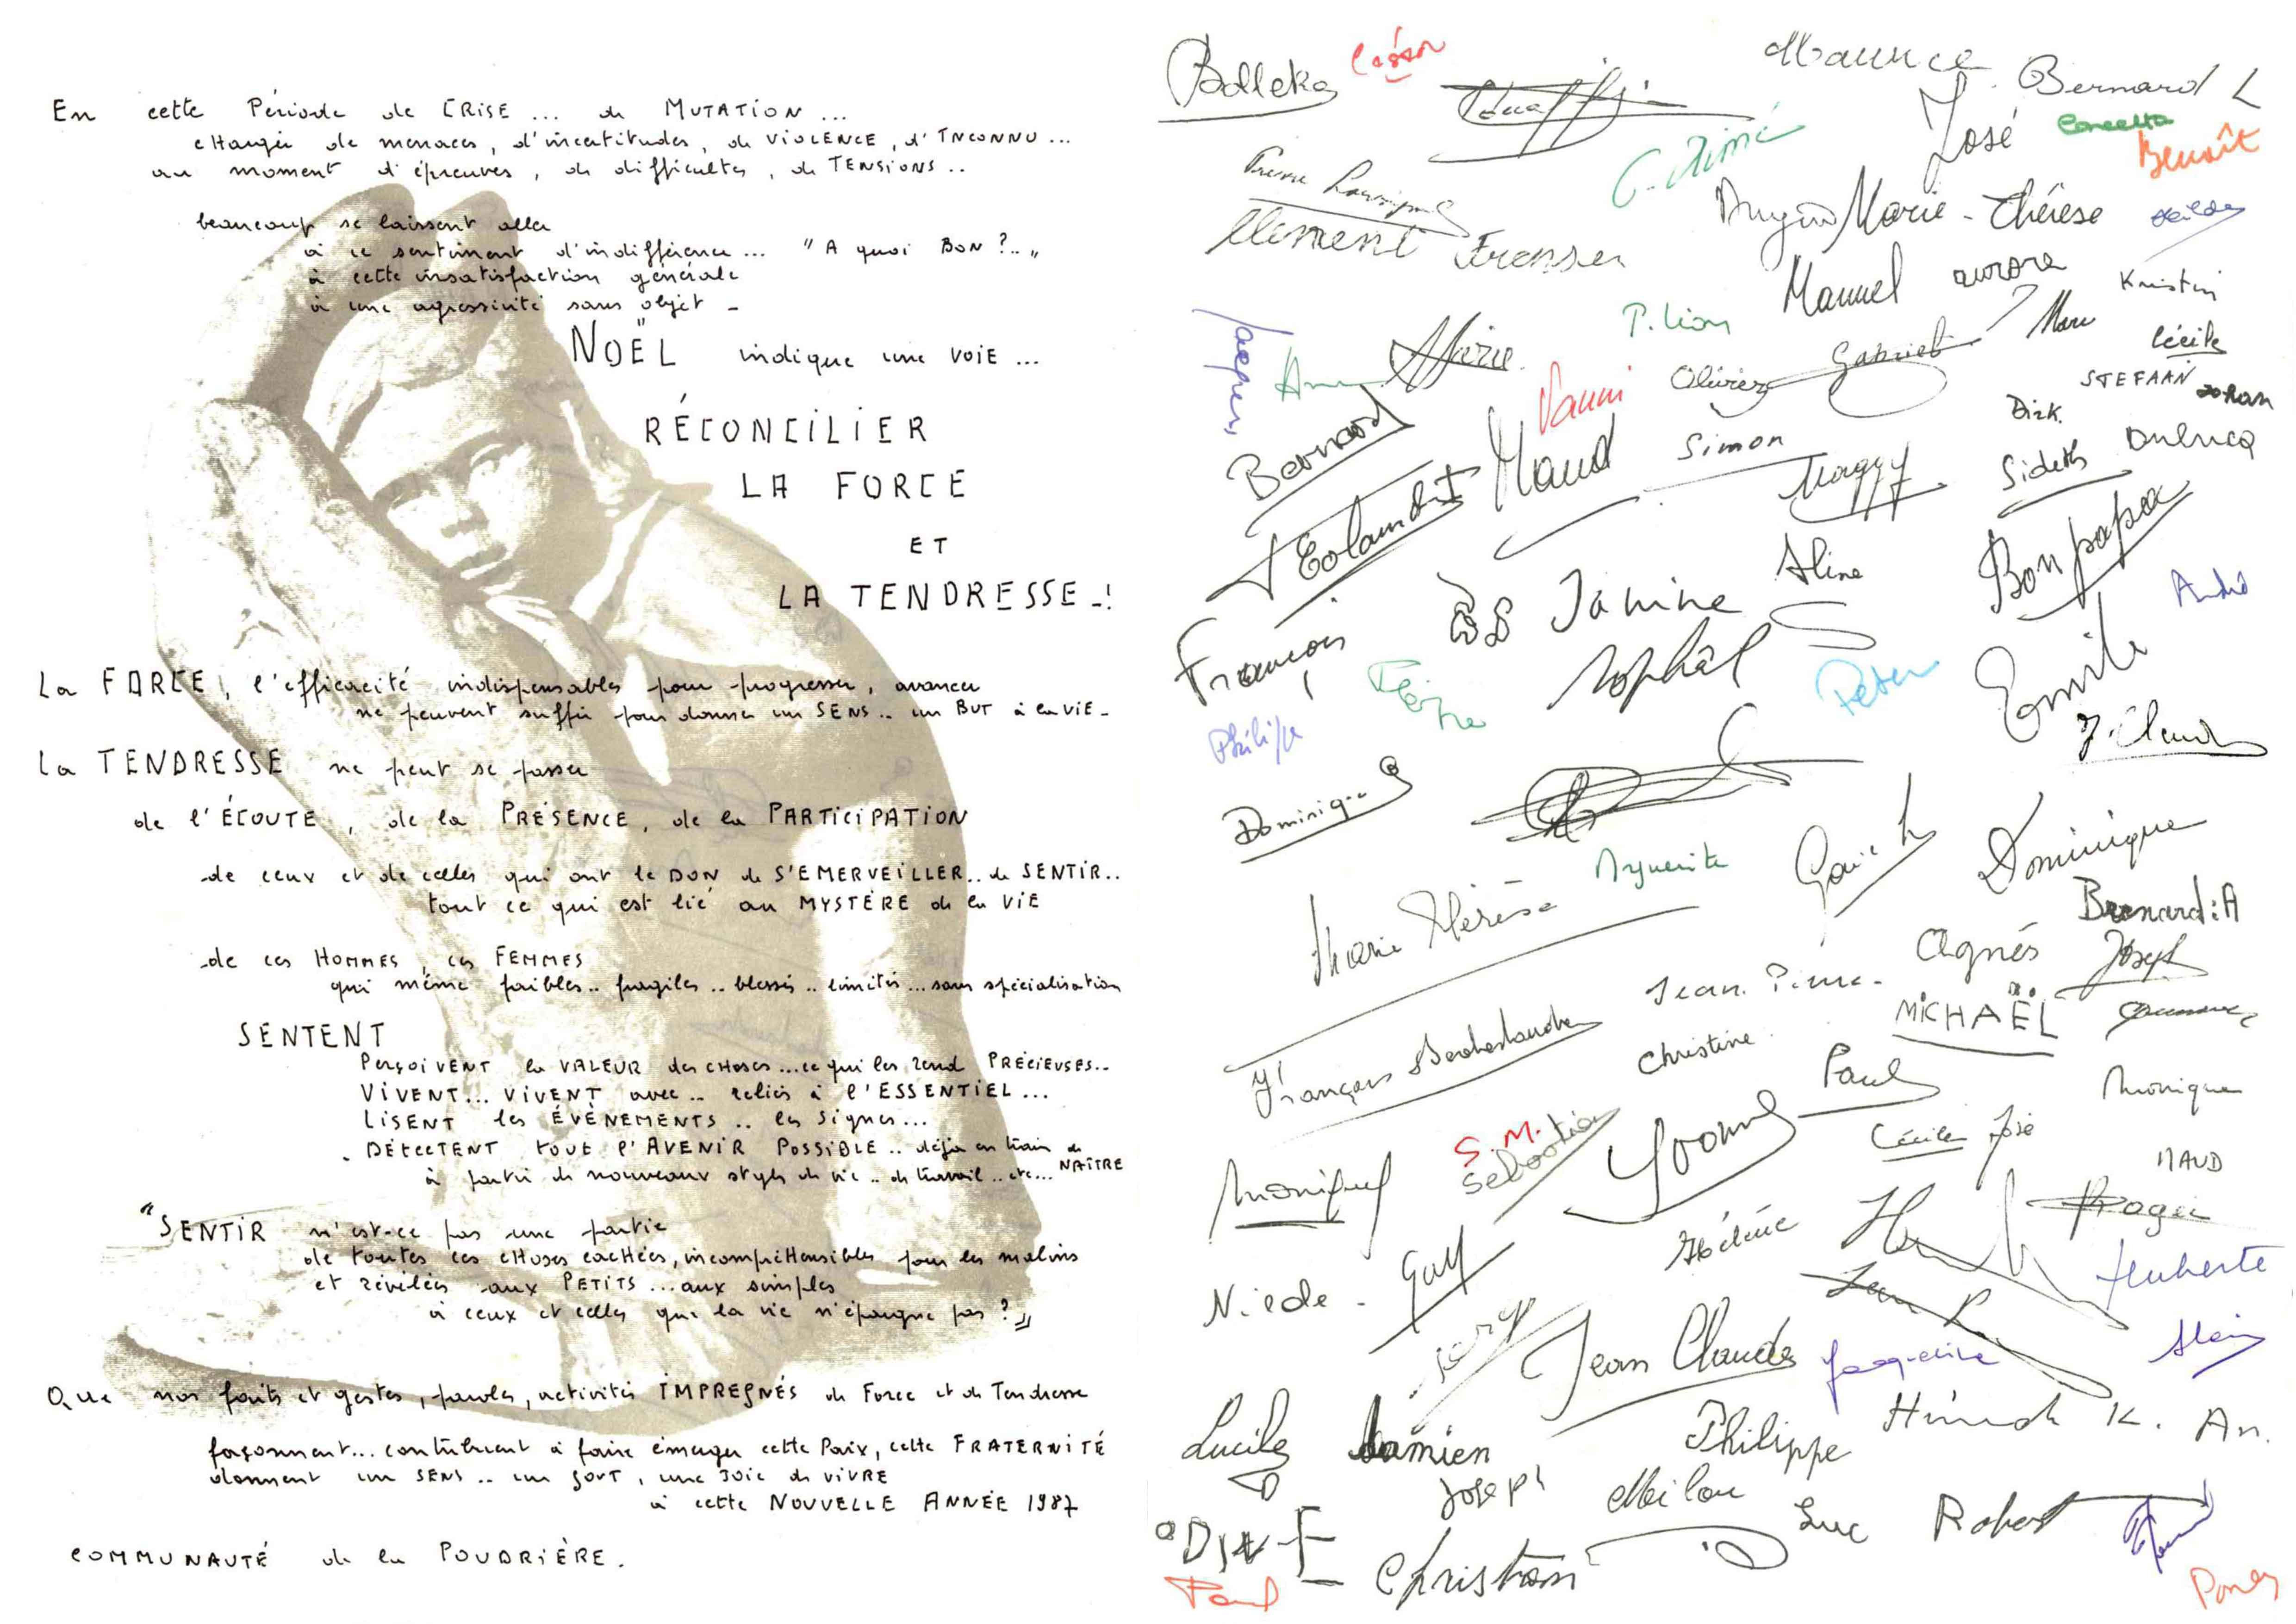 En cette Période de CRISE ... de MUTATION ...
cHargée de menaces, d'incertitudes, de VIOLENCE, d'INCONNU ...
au moment d'épreuves, de difficultés, de TENSIONS ..
beaucoup se laissent aller
à ce sentiment d'indifférence ... "A quoi BON ?.."
à cette insatisfaction générale
à une agressivité sans objet -
NOËL indique une VOIE ...
RÉCONCILIER
LA FORCE
ET
LA TENDRESSE -!
La FORCE, l'efficacité indispensables pour progresser, avancer
ne peuvent suffir pour donner un SENS .. un BUT à la VIE -
La TENDRESSE ne peut se passer
de l'ÉCOUTE, de la PRÉSENCE, de la PARTICIPATION
-de ceux et de celles qui ont le DON de S'EMERVEILLER .. de SENTIR ..
tout ce qui est lié au MYSTÈRE de la VIE
-de ces HOMMES, ces FEMMES
qui même faibles .. fragiles .. blessés .. limités ... sans spécialisation
SENTENT
PERÇOIVENT la VALEUR des cHoses ... ce qui les rend PRÉCIEUSES ..
VIVENT ... VIVENT avec .. reliés à l'ESSENTIEL ...
LISENT les ÉVÈNEMENTS .. les signes ...
. DÉTECTENT tout l'AVENIR POSSIBLE .. déjà en train de NAÎTRE
à partir de nouveaux styles de vie .. de travail .. etc ...
"SENTIR n'est-ce pas une partie
de toutes ces cHoses cacHées, incompréHensibles pour les malins
et révélées aux PETITS ... aux simples
à ceux et celles que la vie n'épargne pas ?"
Que nos faits et gestes, paroles, activités IMPREGNÉS de Force et de Tendresse
façonnent ... contribuent à faire émerger cette Paix, cette FRATERNITÉ
donnent un SENS .. un GOUT, une JOIE de VIVRE
à cette NOUVELLE ANNÉE 1987
COMMUNAUTÉ de la POUDRIÈRE.
Maurice
Bernard L
José
Concetta
Benoît
C. Aimé
Marie-Thérèse
Clément
Manuel
aurora
Kristin
P. Lion
Marc
Jacques
Marie
Vanni
Olivier
Gabriel
Cécile
STEFAAN
Zoran
Dirk.
Bernard
Maud
Simon
Maggy
Sideth
Dulucq
Bon papa
Aline
André
Janine
François
Sophal
Peter
Emile
Philippe
J. Claude
Dominique
Dominique
Marie Thérèse
Bernard:A
Agnès
Joseph
Jean-Pierre
MICHAËL
Christine
François
Paul
Monique
S.M.
Sébastien
Yvonne
Cécile
José
MAUD
Monique
Roger
Hélène
Guy
Huberte
Jean Claude
Jacqueline
Alain
Lucile
Damien
Philippe
Joseph
Luc
Robert
Christian
Paul